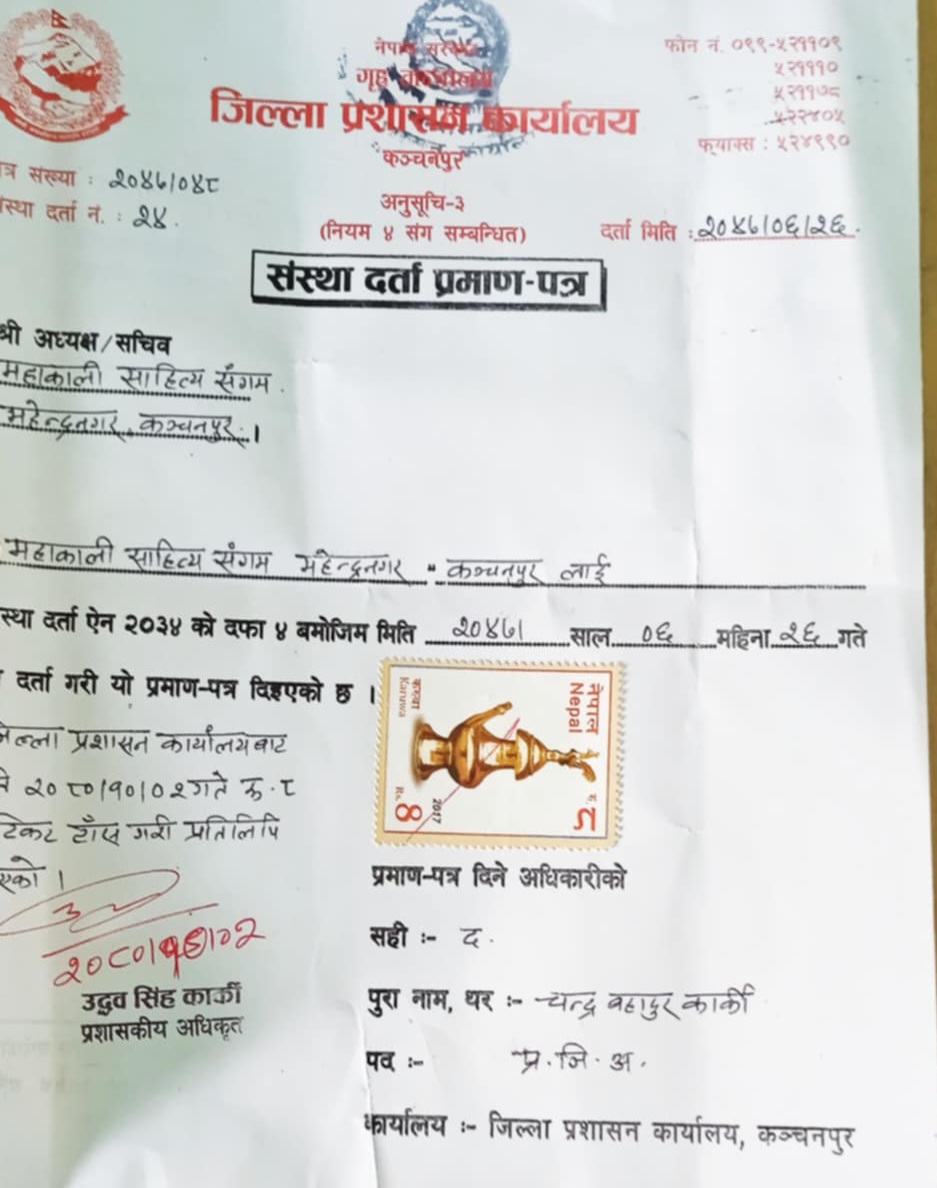 नेपाल सरकार
गृह मन्त्रालय
जिल्ला प्रशासन कार्यालय
कञ्चनपुर
फोन नं. ०९९-५२११०९
५२१११०
५२११७८
५२२४०५
फ्याक्स : ५२४९९०
त्र संख्या : २०४७/०४८
स्था दर्ता नं. : २४.
अनुसूचि-३
(नियम ४ संग सम्बन्धित)
दर्ता मिति : २०४७/०६/२६.
संस्था दर्ता प्रमाण-पत्र
श्री अध्यक्ष/सचिव
महाकाली साहित्य संगम.
महेन्द्रनगर, कञ्चनपुर.।
महाकाली साहित्य संगम महेन्द्रनगर - कञ्चनपुर लाई
स्था दर्ता ऐन २०३४ को दफा ४ बमोजिम मिति २०४७ साल ०६ महिना २६ गते
दर्ता गरी यो प्रमाण-पत्र दिइएको छ ।
जिल्ला प्रशासन कार्यालयबाट
२०८०/१०/०२ गते रु.८
टिकट टाँस गरी प्रतिलिपि
एको ।
२०८०/१०/०२
उद्धव सिंह कार्की
प्रशासकीय अधिकृत
नेपाल
Nepal
रु. ८
करुवा
Karuwa
2017
Rs. 8
प्रमाण-पत्र दिने अधिकारीको
सही :- द.
पुरा नाम, थर :- चन्द्र बहादुर कार्की
पद :- प्र.जि.अ.
कार्यालय :- जिल्ला प्रशासन कार्यालय, कञ्चनपुर